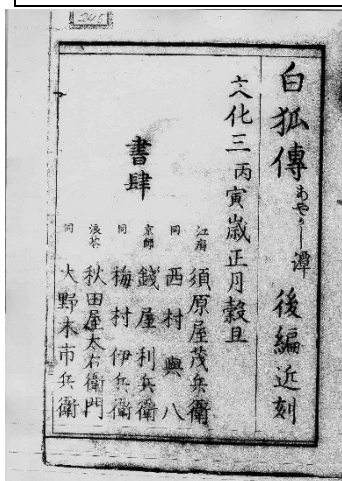 白狐傳あやかし潭 後編近刻
文化三丙寅歳正月穀旦
書肆
江府 須原屋茂兵衛
同 西村與八
京師 錢屋利兵衛
同 梅村伊兵衛
浪花 秋田屋太右衛門
同 大野木市兵衛